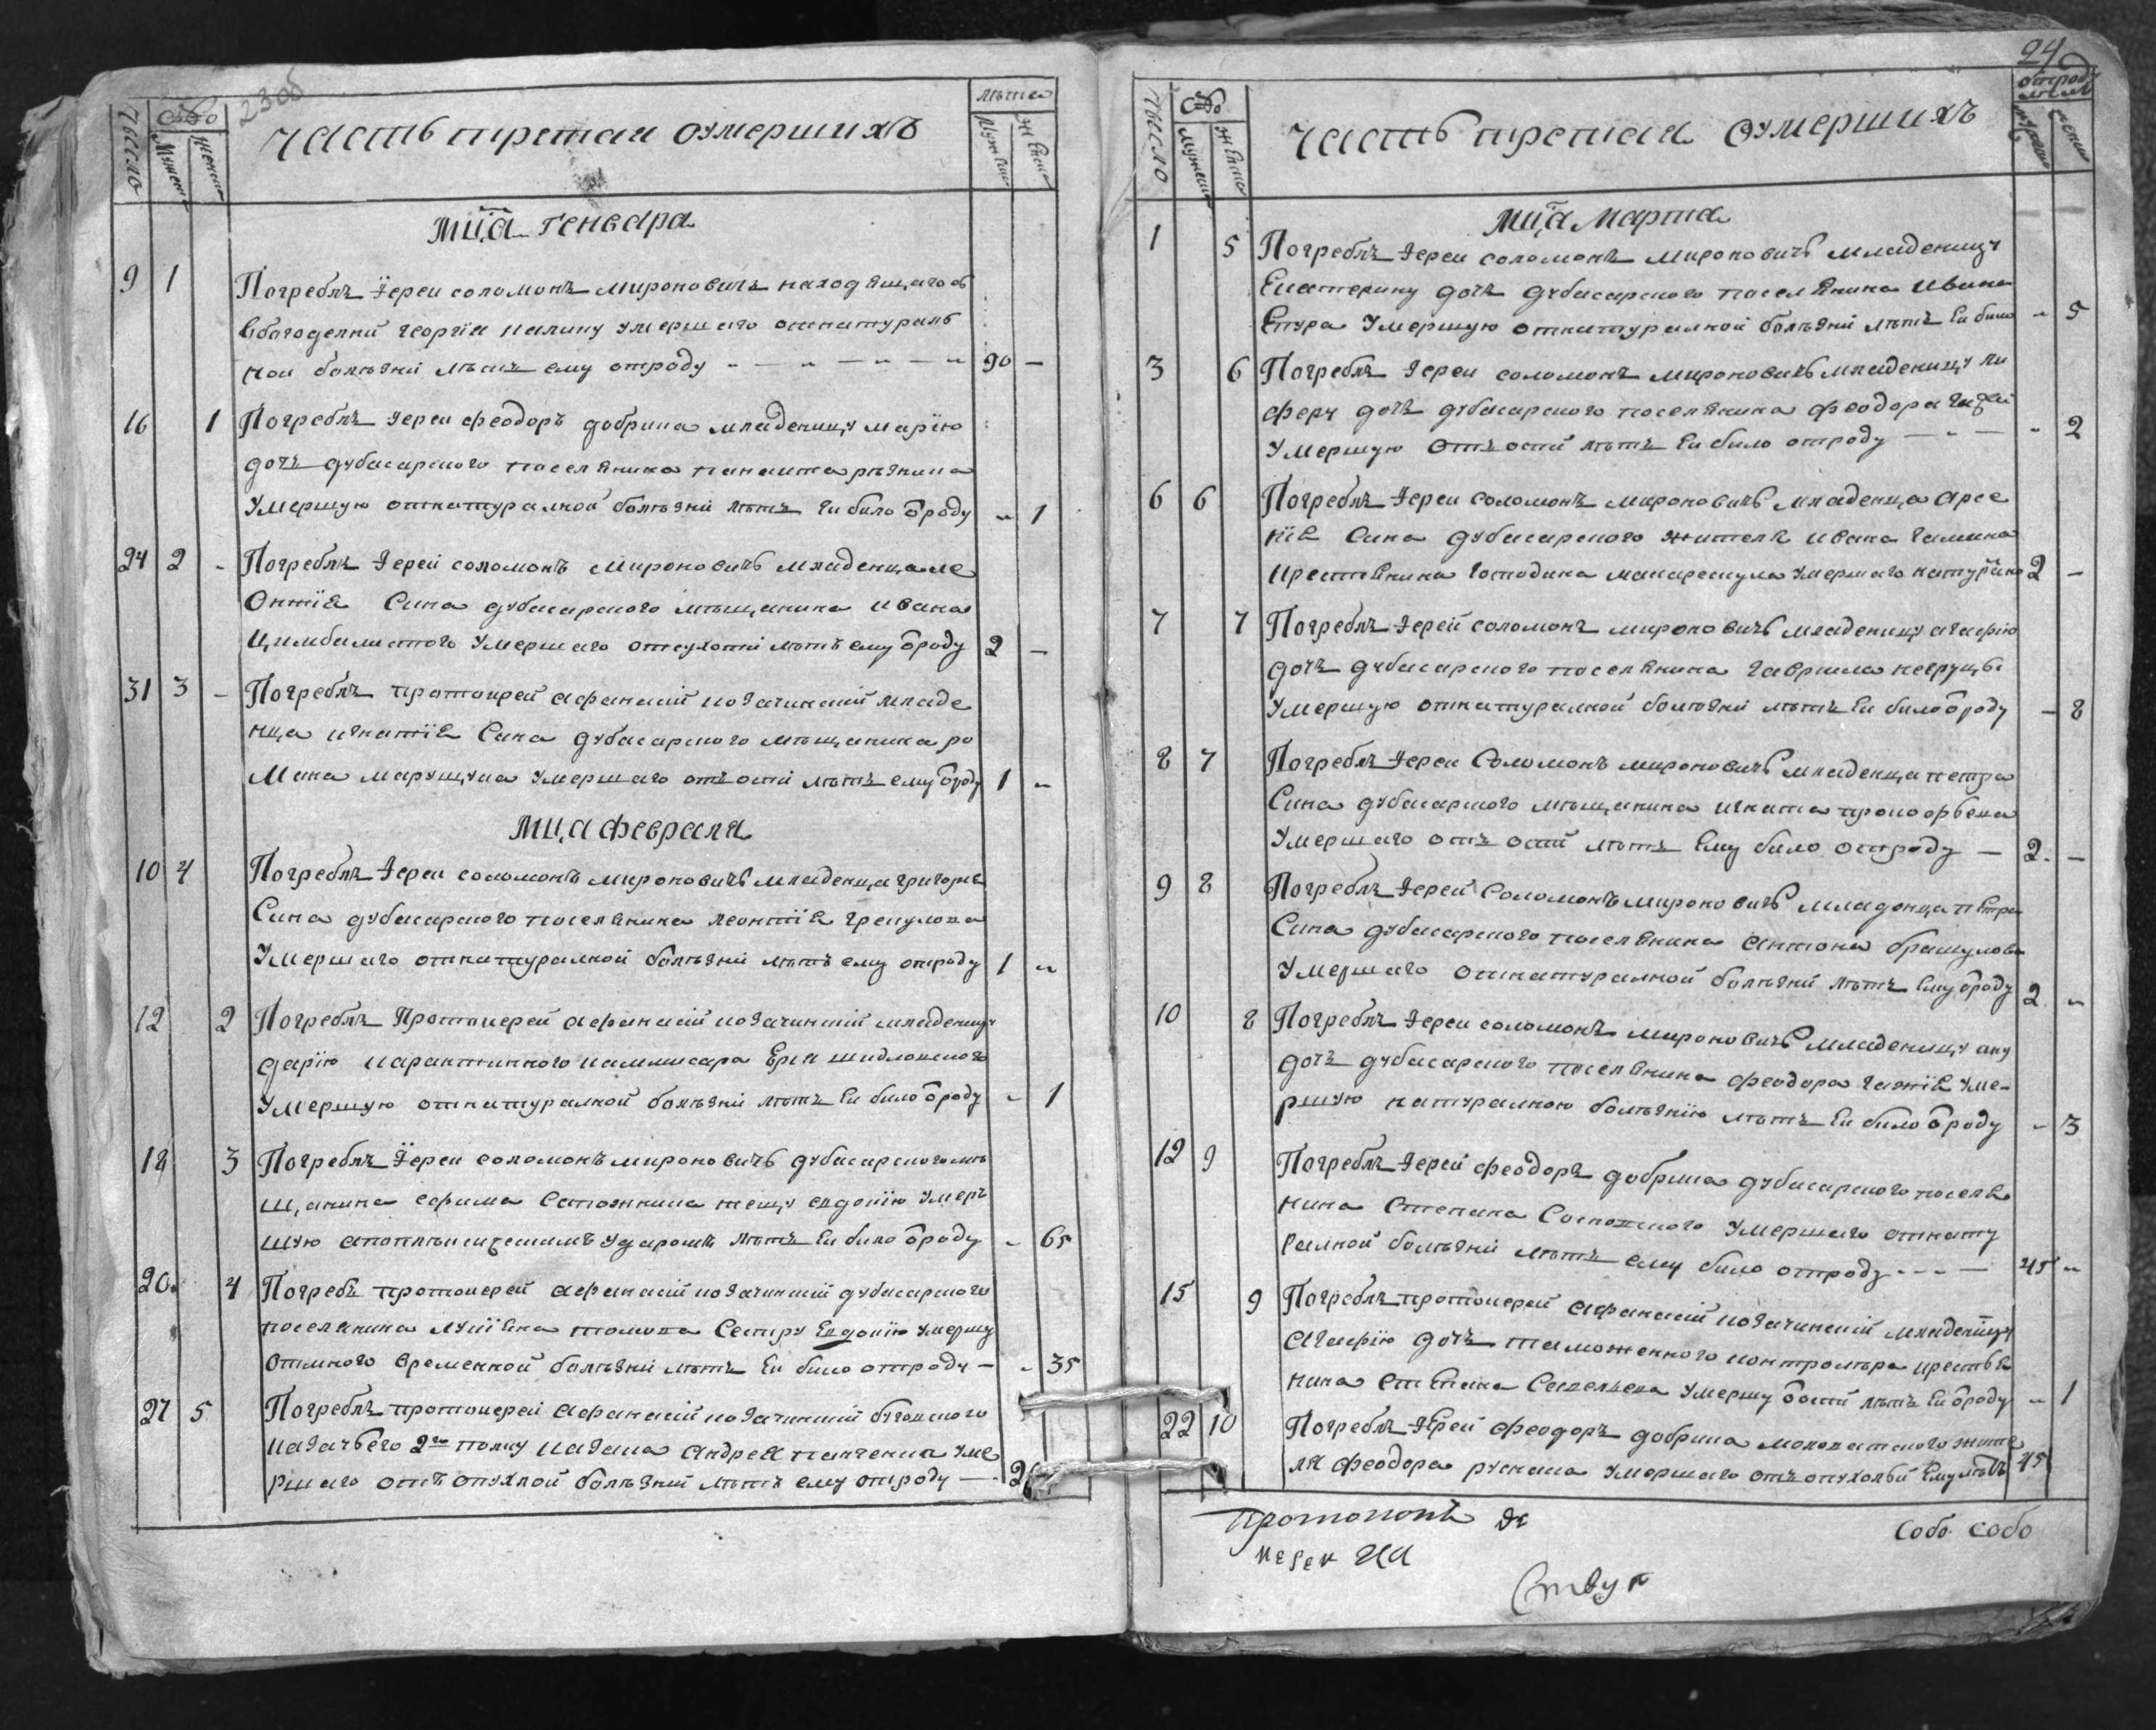 23об
число
Мужеска
женска
Часть третая оумершихъ
лѣта
Мужеска
Женска
мц҃а генвара
9 1 Погреблъ Іереи соломонъ мироновичъ находящагося
вбагоделнй георгіа калину умершаго отнатураль
ной болѣзни лѣтъ ему отроду 90 —
16 1 Погреблъ Іереи феодоръ добрина младеницу марїю
дочъ дубасарского поселянина панаита
умершую отнатуралной болѣзни лѣтъ Еи било ѿроду „ 1
24 2 - Погреблъ Іерей соломонъ мироновичъ младенца ле
онтїя Сина дубасарского мѣщанина ивана
Цимбалистого умершаго отсухоти лѣтъ ему ѿроду 2 —
31 3 - Погреблъ протоиерей афанасій козачинскій младе
нца игнатія Сина дубасарского мѣщанина ро
мана марущука умершаго отъ оспи лѣтъ ему ѿроду 1 „
мц҃а февраля
10 4 Погреблъ Іереи соломонъ мироновичъ младенца григория
Сина дубасарского поселянина леонтїя грекулова
умершаго отнатуралной болѣзни лѣтъ ему отроду 1 „
12 2 Погреблъ Протоиерей афанасій козачинскій младеницу
дарїю карантинного каммисара
умершую отнатуралной болѣзни лѣтъ Еи било ѿроду „ 1
18 3 Погреблъ Іереи соломонъ мироновичъ дубасарского мѣ
щанина ефима тещу евдокїю умер
шую ударомъ лѣтъ Еи било ѿроду „ 65
20 4 Погребъ протоиерей афанасій козачинскій дубасарского
поселянина лукїяна Сестру Евдокїю умершу
отмного временной болѣзни лѣтъ Еи било отроду — „ 35
27 5 Погреблъ протоиерей афанасій козачинскій бугского
казачьего 2го полку казака андрея панченка уме
ршаго отъ опухлой болѣзнй лѣтъ ему отроду —
24
число
Мужеска
женска
Часть третая оумершихъ
отроду
лѣтъ
мц҃а марта
1 5 Погреблъ Іереи соломонъ мироновичъ младеницу
Екатерину дочъ дубасарского поселянина ивана
умершую отнатуралной болѣзни лѣтъ Еи било „ 5
3 6 Погреблъ Іереи соломонъ мироновичъ младеницу ни
феру дочъ дубасарского поселянина феодора
умершую отъ оспй лѣтъ Еи било отроду — „ 2
6 6 Погреблъ Іереи соломонъ мироновичъ младенца арсе
нїя Сина дубасарского жителя ивана
крестянина господина макарескула умершаго 2 —
7 7 Погреблъ Іерей соломонъ мироновичъ младеницу агафїю
дочъ дубасарского поселянина гавриила
умершую отнатуралной болѣзни лѣтъ Еи било ѿроду — 8
8 7 Погреблъ Іереи Соломонъ мироновичъ младенца петра
Сина дубасарского мѣщанина игната
умершаго отъ оспй лѣтъ Ему било отроду — 2 —
9 8 Погреблъ Іерей Соломонъ мироновичъ младенца петра
Сина дубасарского поселянина антона
умершаго отнатуралной болѣзни лѣтъ Ему ѿроду 2 „
10 8 Погреблъ Іереи соломонъ мироновичъ младеницу ану
дочъ дубасарского поселянина феодора уме-
ршую натуралною болѣзнїю лѣтъ Еи било ѿроду „ 3
12 9 Погреблъ Іерей феодоръ добрина дубасарского поселя
нина Степана умершаго отнату
ралной болѣзни лѣтъ ему било отроду - - - — 45 „
15 9 Погреблъ протоиерей афанасій козачинскій младеницу
агафїю дочъ таможенного контролѣра крестья
нина степана Савельева умершу ѿоспй лѣтъ Еи ѿроду „ 1
22 10 Погреблъ Іерей феодоръ добрина жите
ля феодора умершаго отъ Ему лѣтъ 45
Протопопъ
Собо собо